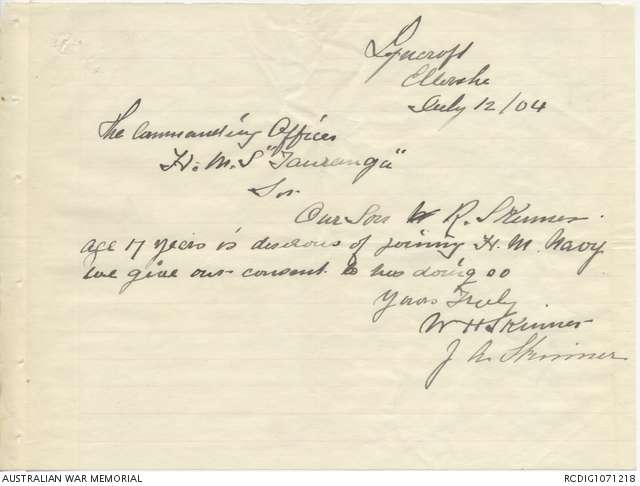 Lyncroft
Ellerslie
July 12/04
The Commanding Officer
H.M.S "Tauranga"
Sir
Our Son W R. Skinner
age 17 years is desirous of joining H.M. Navy
we give our consent to his doing so
Yours Truly
W H Skinner
J A. Skinner
AUSTRALIAN WAR MEMORIAL
RCDIG1071218